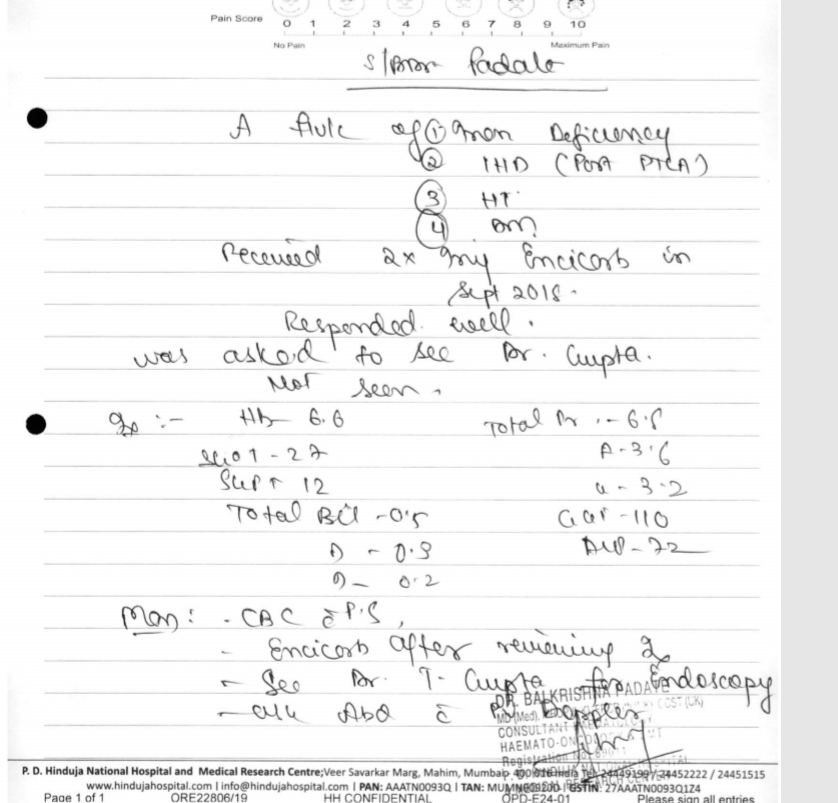 Pain Score 0 1 2 3 4 5 6 7 8 9 10
No Pain Maximum Pain
Padale
A of ① Deficiency
② IHD (Post PTCA)
③ HT
④ DM
Received 2x Encicarb in
Sept 2018.
Responded well.
was asked to see Dr. Gupta.
Not seen.
:- Hb 6.6 Total Pr :- 6.8
SGOT - 27 A - 3.6
SGPT 12 G - 3.2
Total Bil - 0.5 GGT - 110
- 0.3 ALP - 72
- 0.2
- CBC c̄ P.S,
- Encicarb after reviewing
- See Dr. T. Gupta for Endoscopy
- Abd c̄ Doppler
DR. BALKRISHNA PADATE
MD (Med).
CONSULTANT
HAEMATO-
Registration
P. D. Hinduja National Hospital and Medical Research Centre;Veer Savarkar Marg, Mahim, Mumbai- 400 016 India Tel: 24449199 / 24452222 / 24451515
www.hindujahospital.com I info@hindujahospital.com I PAN: AAATN0093Q I TAN: I GSTIN: 27AAATN0093Q1Z4
Page 1 of 1 ORE22806/19 HH CONFIDENTIAL OPD-E24-01 Please sign all entries